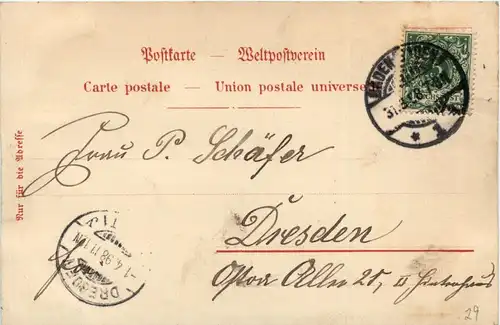 Postkarte — Weltpostverein
Carte postale — Union postale universelle
Nur für die Adresse
Frau P. Schäfer
Dresden
Allee 25, II Hinterhaus
1.4.98.11-12N
29